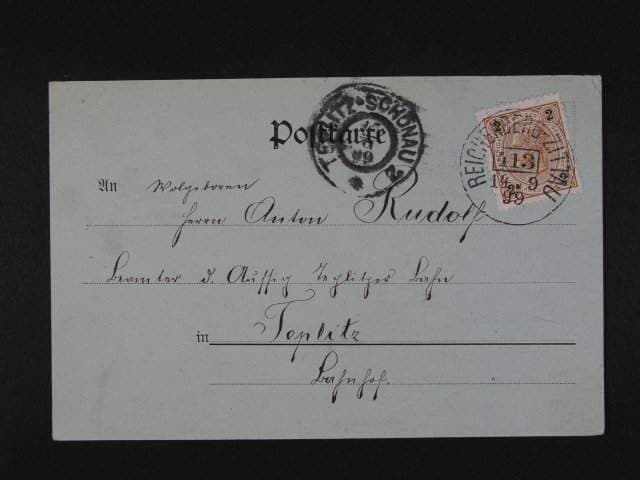 Postkarte
TEPLITZ-SCHÖNAU 2
99
2 2
REICHENBERG-ZITTAU
413
9
99
An Wolgeboren
Herrn Anton Rudolf
Beamter d. Aussig Teplitzer Bahn
in Teplitz
Bahnhof.